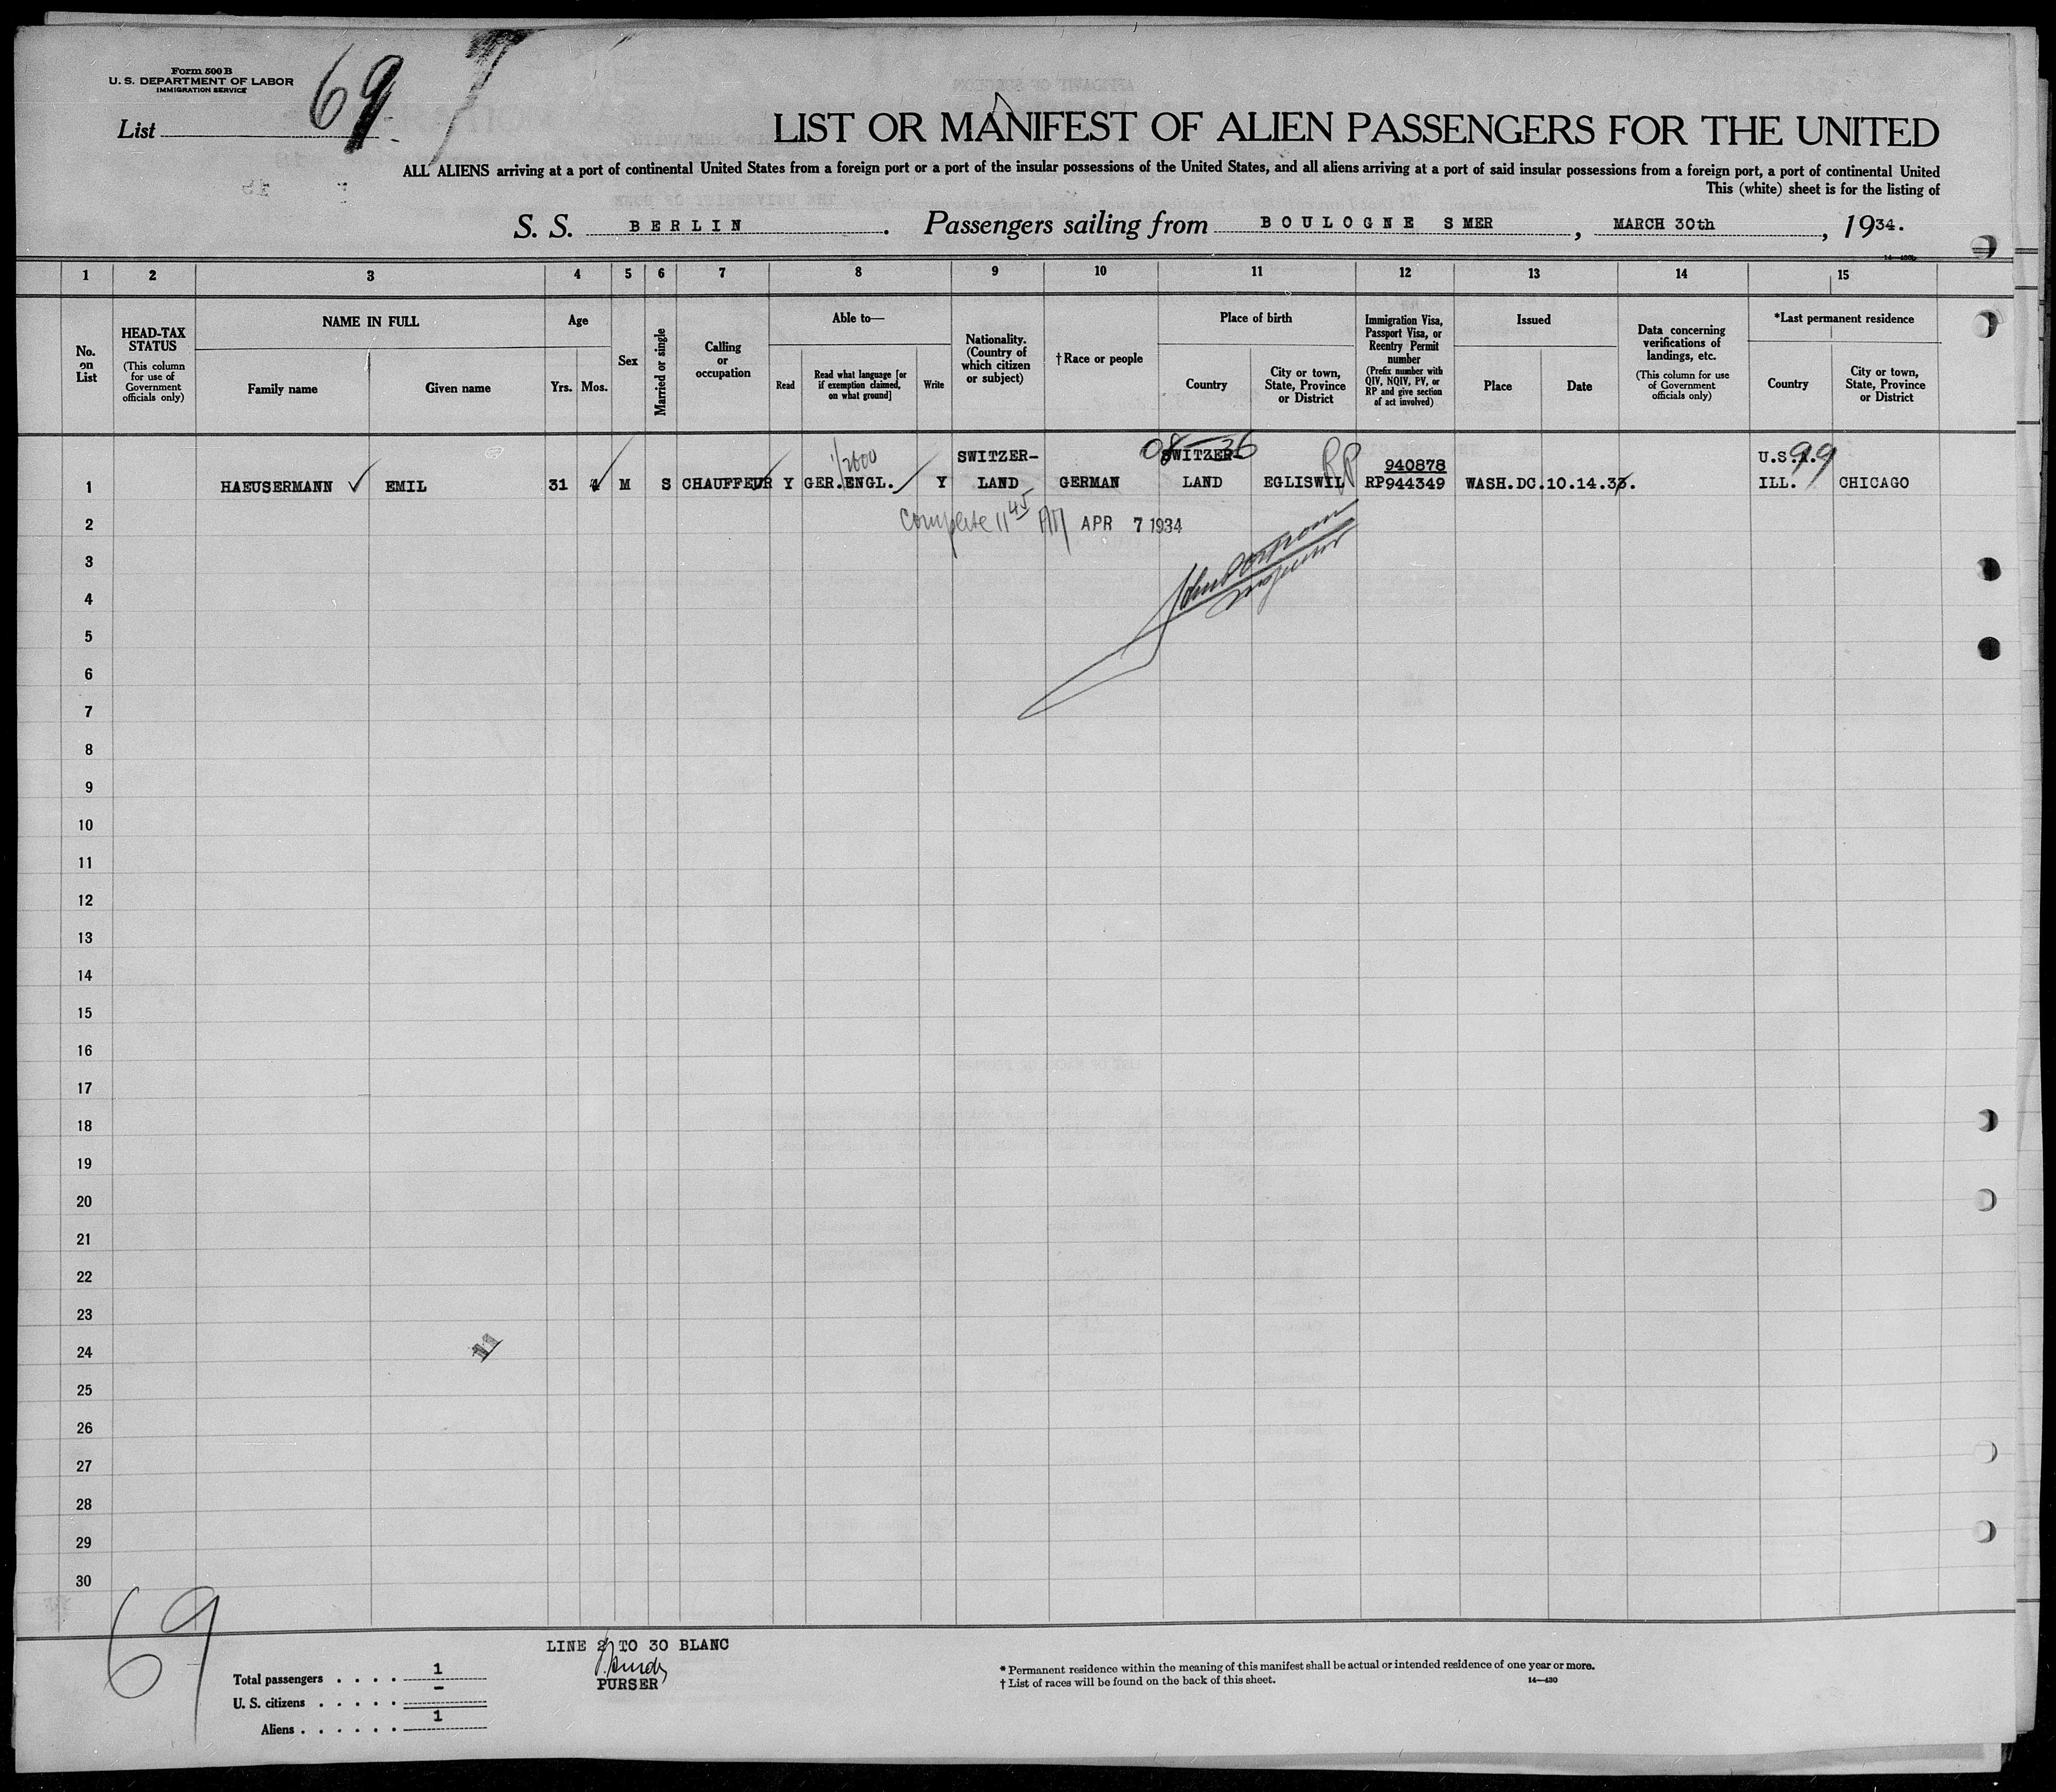 Form 500 B
U. S. DEPARTMENT OF LABOR
IMMIGRATION SERVICE
List 69
LIST OR MANIFEST OF ALIEN PASSENGERS FOR THE UNITED
ALL ALIENS arriving at a port of continental United States from a foreign port or a port of the insular possessions of the United States, and all aliens arriving at a port of said insular possessions from a foreign port, a port of continental United
This (white) sheet is for the listing of
S. S. BERLIN. Passengers sailing from BOULOGNE S MER, MARCH 30th, 1934.
1 2 3 4 5 6 7 8 9 10 11 12 13 14 15
No. on List
HEAD-TAX STATUS
(This column for use of Government officials only)
NAME IN FULL
Family name
Given name
Age
Yrs. Mos.
Sex
Married or single
Calling or occupation
Able to—
Read
Read what language [or if exemption claimed, on what ground]
Write
Nationality. (Country of which citizen or subject)
† Race or people
Place of birth
Country
City or town, State, Province or District
Immigration Visa, Passport Visa, or Reentry Permit number
(Prefix number with QIV, NQIV, PV, or RP and give section of act involved)
Issued
Place
Date
Data concerning verifications of landings, etc.
(This column for use of Government officials only)
*Last permanent residence
Country
City or town, State, Province or District
1/2600 SWITZER- SWITZER- RP 940878 U.S.A. 99
1 HAEUSERMANN EMIL 31 4 M S CHAUFFEUR Y GER.ENGL. Y LAND GERMAN LAND EGLISWIL RP944349 WASH.DC. 10.14.33. ILL. CHICAGO
2 Complete 11 45 AM APR 7 1934
3 Inspector
4
5
6
7
8
9
10
11
12
13
14
15
16
17
18
19
20
21
22
23
24
25
26
27
28
29
30
69
LINE 2 TO 30 BLANC
PURSER
Total passengers . . . . 1
U. S. citizens . . . . . –
Aliens . . . . . . 1
* Permanent residence within the meaning of this manifest shall be actual or intended residence of one year or more.
† List of races will be found on the back of this sheet.
14—430